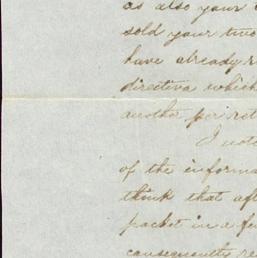 as also your
sold your two
have already
directive which
another per ret
I note
of the informa
think that aft
packet in a fe
consequently re